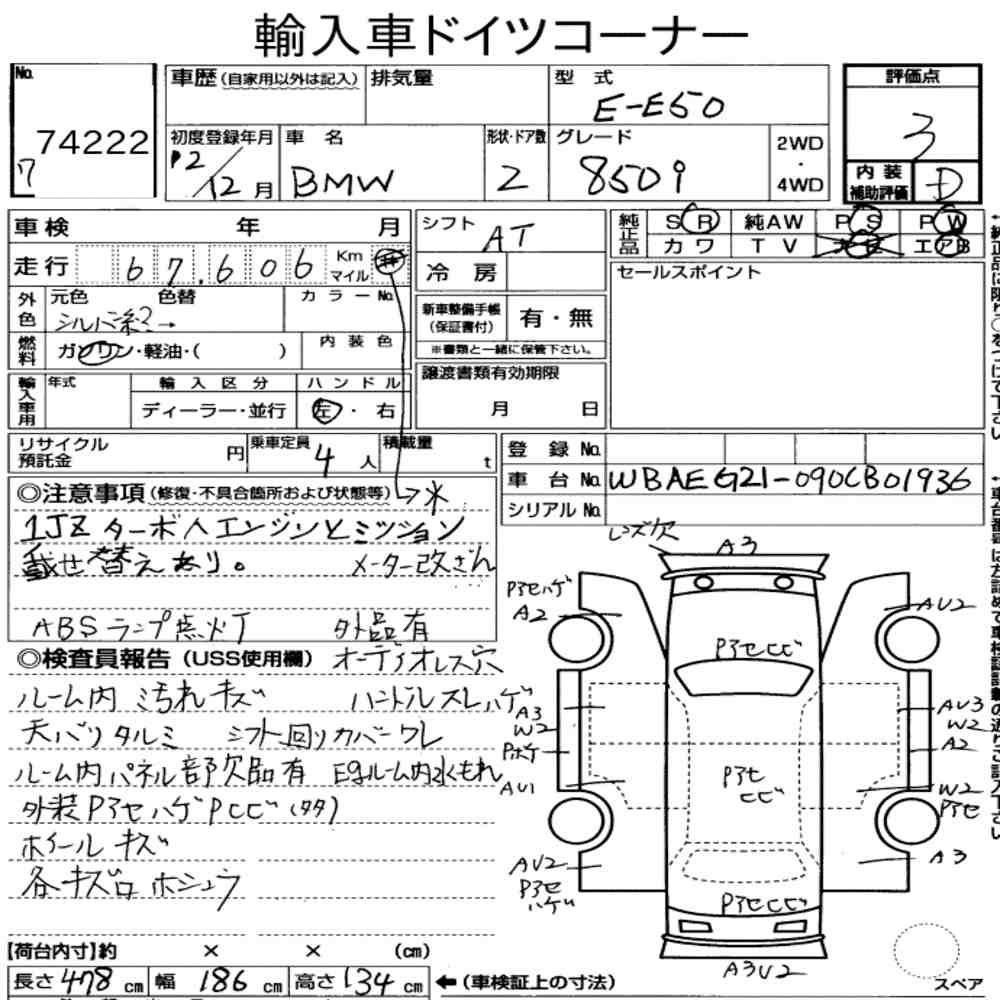 輸入車ドイツコーナー
No. 74222
7
車歴（自家用以外は記入） 排気量 型 式 E-E50
初度登録年月 12/12月 車 名 BMW 形状・ドア数 2 グレード 850i 2WD・4WD
評価点 3
内装補助評価 D
車検 年 月
走行 67,606 Km マイル
シフト AT
冷房
純正品 SR 純AW PS PW
カワ TV エアB
セールスポイント
外色 元色 色替 カラーNo.
シルバー
燃料 ガソリン・軽油・（ ） 内装色
新車整備手帳（保証書付） 有・無
※書類と一緒に保管下さい。
輸入車用 年式 輸入区分 ハンドル
ディーラー・並行 左・右
譲渡書類有効期限
月 日
リサイクル預託金 円 乗車定員 4人 積載量 t
登録No.
車台No. WBAEG21-090CB01936
シリアルNo.
◎注意事項（修復・不具合箇所および状態等）→ *
1JZ ターボ人エンジンとミッション
載せ替えあり。 メーター改ざん
ABSランプ点灯 外品有
◎検査員報告（USS使用欄） オーディオレス穴
ルーム内 汚れキズ ハンドルスレハゲ
天バリタルミ シフト回りカバーワレ
ルーム内パネル部欠品有 Egルーム内水もれ
外装PアセハゲPヒビ（タタ）
ホイールキズ
各キズロホシュウ
レンズ欠 A3
PアセハゲA2
AU2
Pアセヒビ
A3 W2 Pホゲ
AU3 W2 A2
AU1
Pアセ ヒビ
W2 Pアセ
AU2 Pアセ ハゲ
A3
Pアセヒビ
A3U2
スペア
【荷台内寸】約 × × （cm）
長さ 478 cm 幅 186 cm 高さ 134 cm ←（車検証上の寸法）